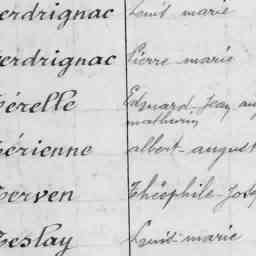 erdrignac Louis marie
erdrignac Pierre marie
érelle Edouard Jean au
mathurin
érienne albert-august
erven Théophile-Jose
eslay Louis-marie